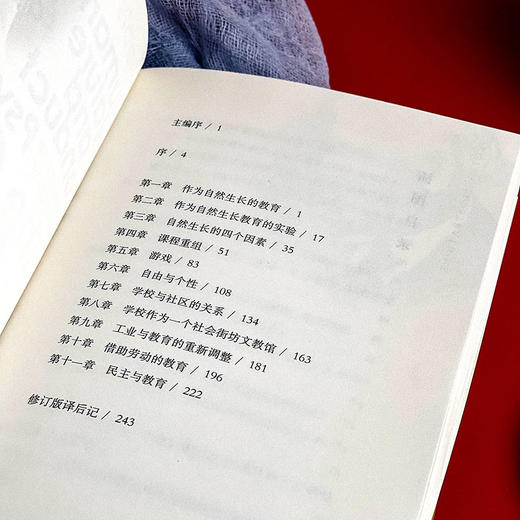 主编序 / 1
序 / 4
第一章 作为自然生长的教育 / 1
第二章 作为自然生长教育的实验 / 17
第三章 自然生长的四个因素 / 35
第四章 课程重组 / 51
第五章 游戏 / 83
第六章 自由与个性 / 108
第七章 学校与社区的关系 / 134
第八章 学校作为一个社会街坊文教馆 / 163
第九章 工业与教育的重新调整 / 181
第十章 借助劳动的教育 / 196
第十一章 民主与教育 / 222
修订版译后记 / 243